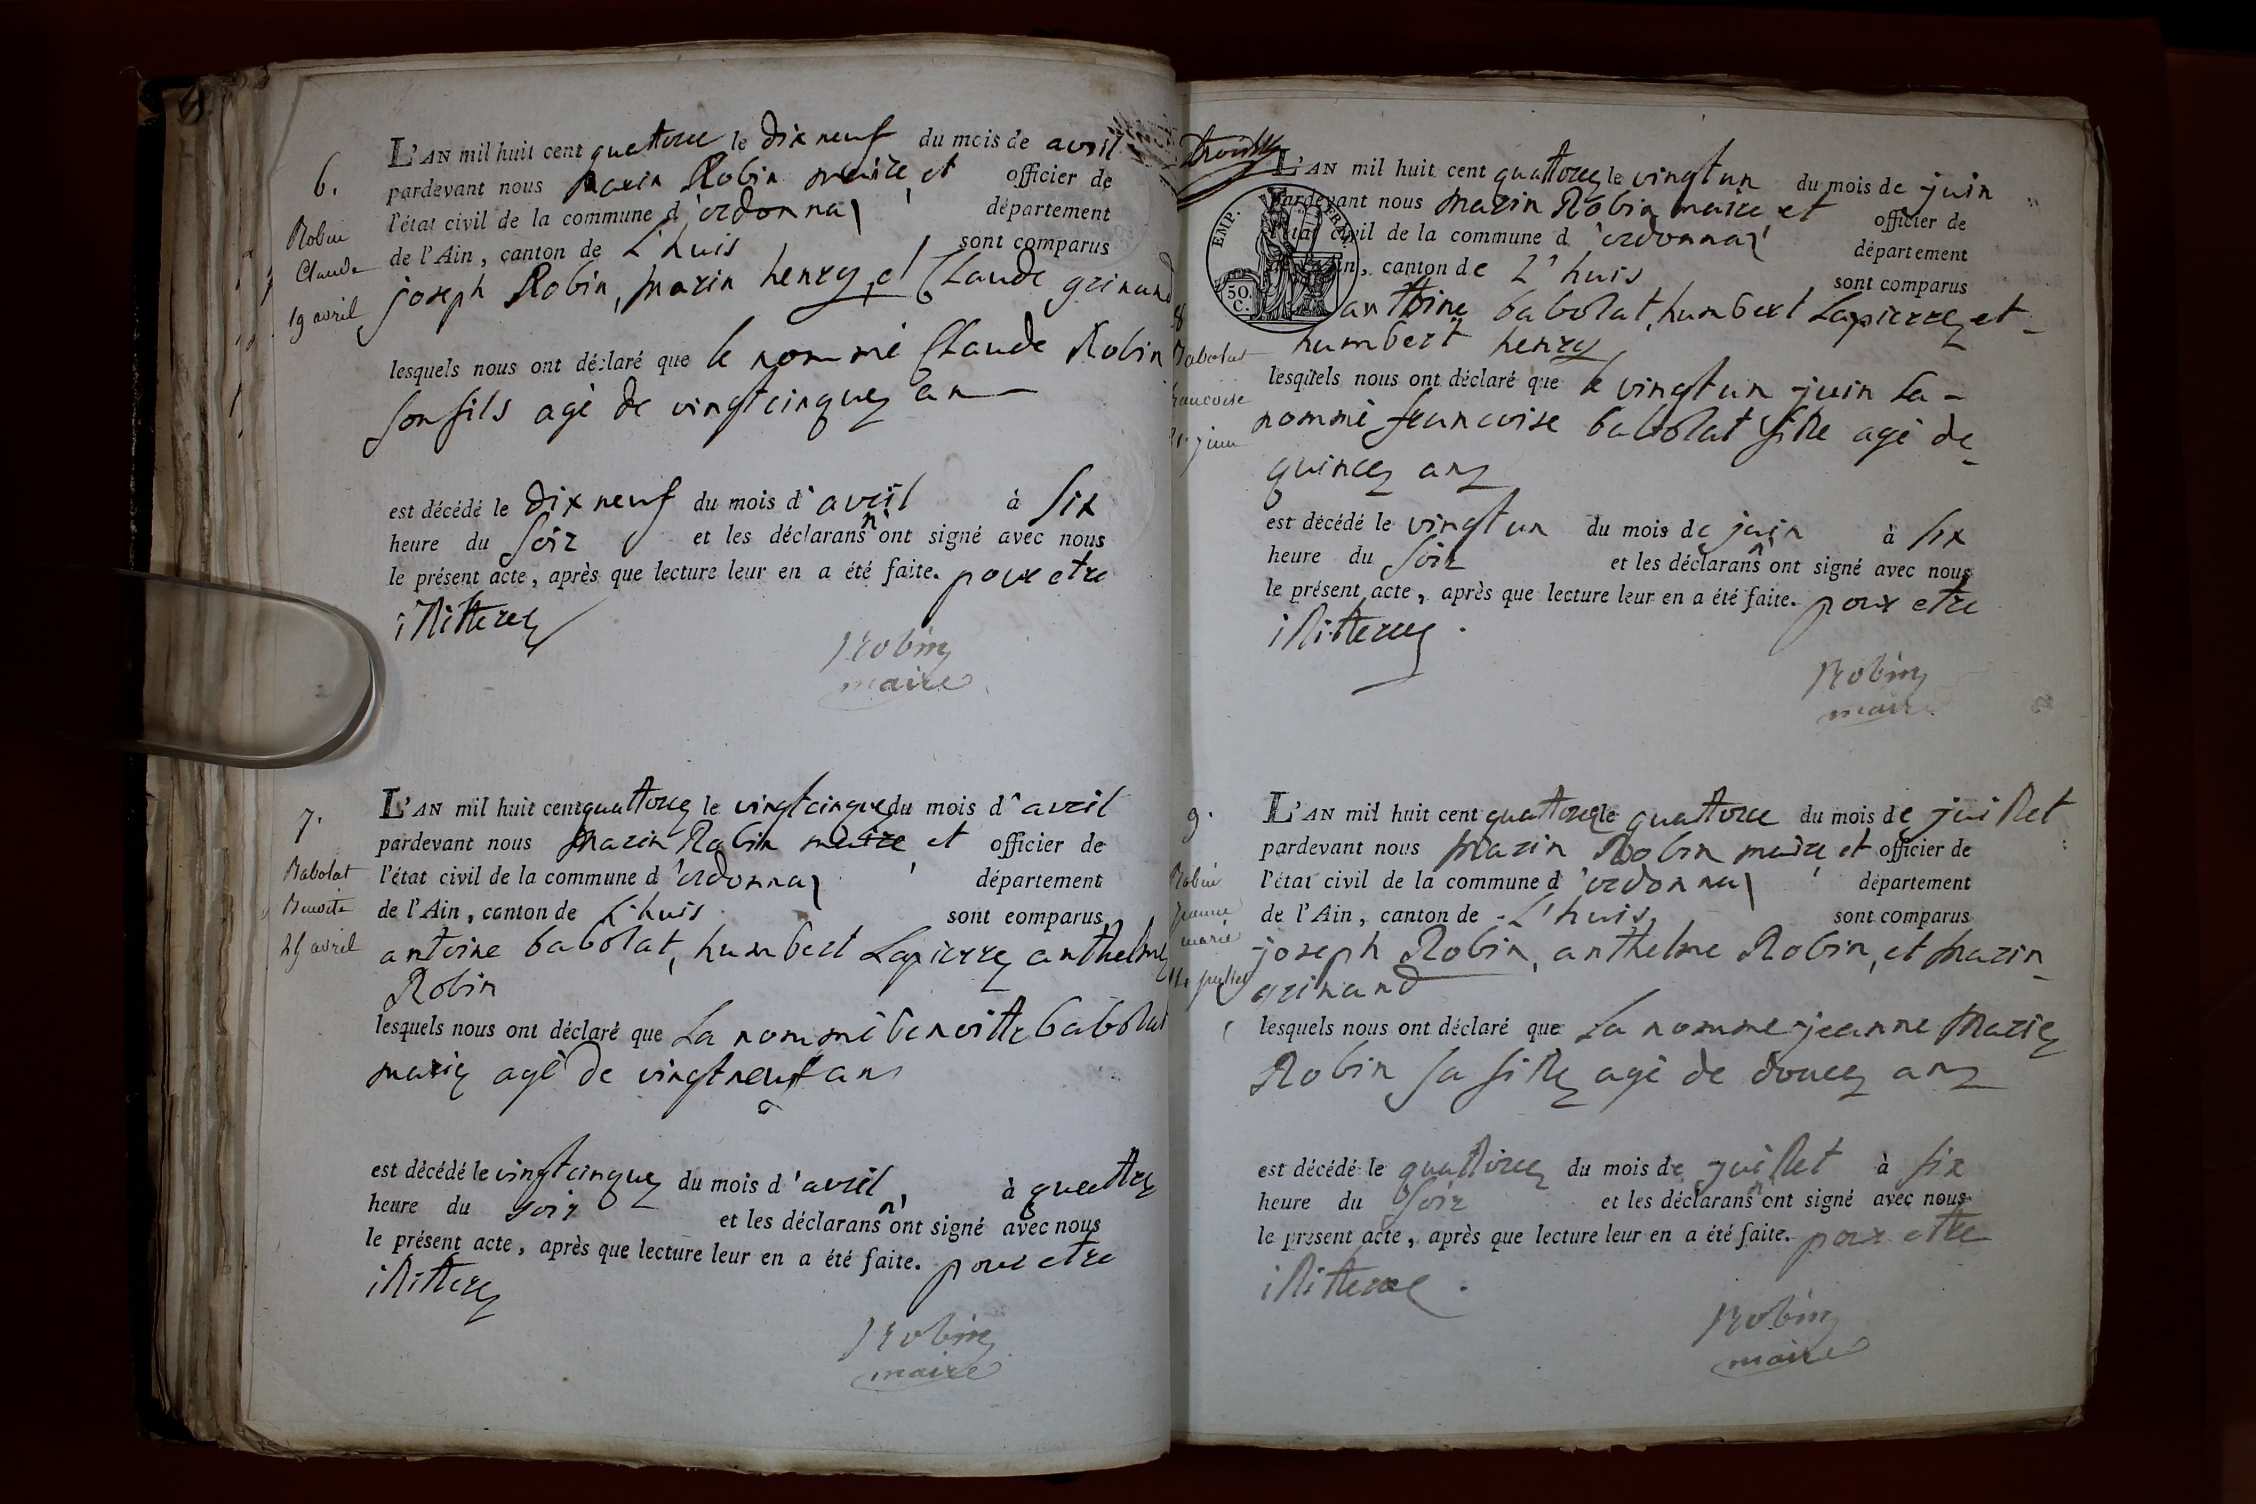 6.
Robin
Claude
19 avril
L'AN mil huit cent quattorce le dix neuf du mois de avril
pardevant nous marin Robin maire et officier de
l'état civil de la commune d'ordonna département
de l'Ain, canton de L'huis sont comparus
joseph Robin, marin henry, et Claude grinand
lesquels nous ont déclaré que le nommé Claude Robin
son fils agé de vingtcinque an
est décédé le dix neuf du mois d'avril à six
heure du soir et les déclarans n'ont signé avec nous
le présent acte, après que lecture leur en a été faite. pour etre
illitteré
Robin
maire
7.
Babolat
Benoite
25 avril
L'AN mil huit cent quattorce le vingtcinque du mois d'avril
pardevant nous marin Robin maire et officier de
l'état civil de la commune d'ordonna département
de l'Ain, canton de L'huis sont comparus
antoine babolat, humbert Lapierre anthelme
Robin
lesquels nous ont déclaré que La nommé benoitte babolat
marie agé de vingtneuf ans
est décédé le vingtcinque du mois d'avril à quattre
heure du soir et les déclarans n'ont signé avec nous
le présent acte, après que lecture leur en a été faite. pour etre
illittere
Robin
maire
EMP. FRA.
50.
C.
8
Babolat
francoise
21 juin
L'AN mil huit cent quattorce le vingt un du mois de juin
pardevant nous marin Robin maire et officier de
l'état civil de la commune d'ordonna département
de l'Ain, canton de L'huis sont comparus
anttoine babolat, humbert Lapierre et
humbert henry
lesquels nous ont déclaré que le vingt un juin La
nommé francoise babolat fille agé de
quince ans
est décédé le vingt un du mois de juin à six
heure du soir et les déclarans n'ont signé avec nous
le présent acte, après que lecture leur en a été faite. pour etre
illitteree.
Robin
maire
9.
Robin
jeanne
marie
14 juillet
L'AN mil huit cent quattorce le quattorce du mois de juillet
pardevant nous marin Robin maire et officier de
l'état civil de la commune d'ordonna département
de l'Ain, canton de L'huis sont comparus
joseph Robin, anthelme Robin, et marin
grinand
lesquels nous ont déclaré que La nomme jeanne marie
Robin sa fille agé de douce ans
est décédé le quattorce du mois de juillet à six
heure du soir et les déclarans n'ont signé avec nous
le présent acte, après que lecture leur en a été faite. pour etre
illitteree.
Robin
maire